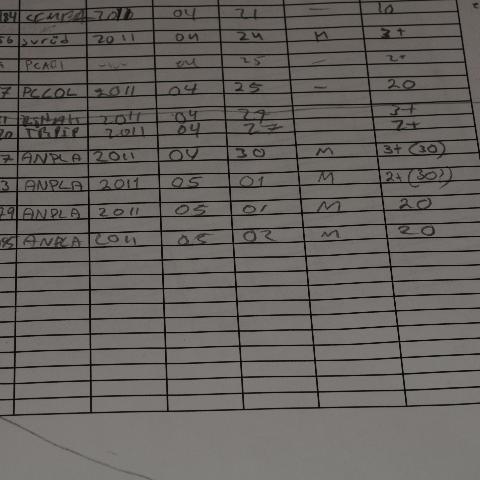 84 2011 04 21 - 10
56 2011 04 24 M 3+
04 25
7 PCCOL 2011 04 25 - 20
2011 04 27 3+
20 2011 04 27 2+
7 ANPLA 2011 04 30 M 3+ (30)
3 ANPLA 2011 05 01 M 2+ (30?)
79 ANPLA 2011 05 01 M 20
85 ANPLA 2011 05 02 M 20